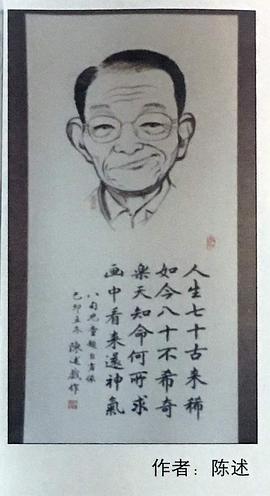 人生七十古来稀
如今八十不希奇
乐天知命何所求
画中看来还神氣
八旬児童题自畫像
己卯立冬 陳述戲作
作者：陈述